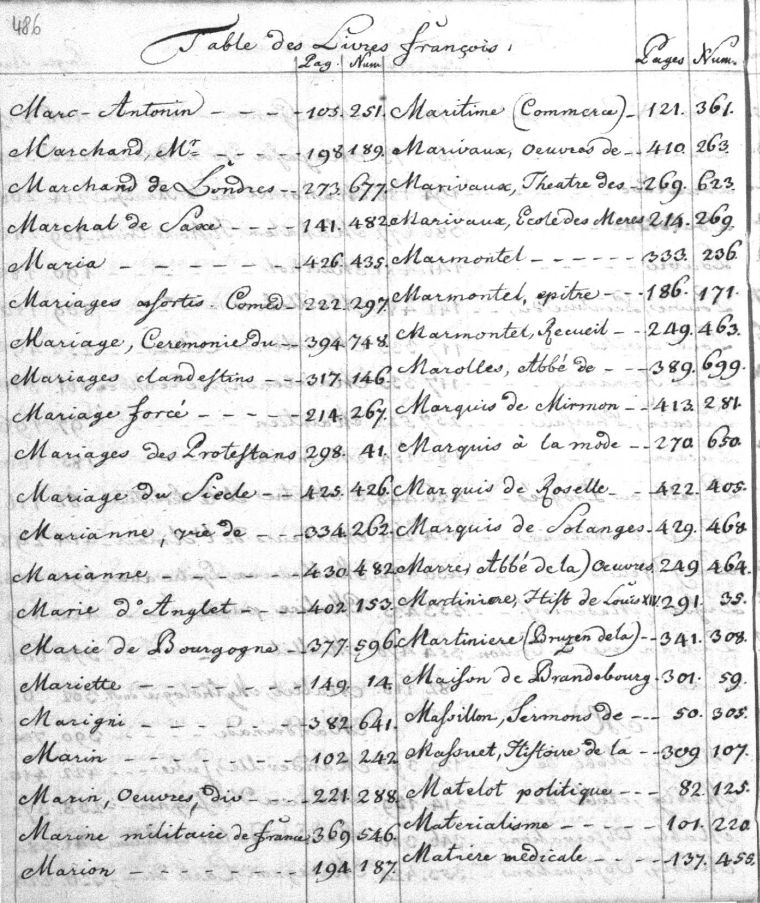 486
Table des Livres François.
Pag. Num
Pages Num.
Marc-Antonin - - - - 105. 251.
Marchand, Mr - - - - 198 189.
Marchand de Londres - - 273. 677.
Marchal de Saxe - - - - 141. 482
Maria - - - - - - - 426. 435.
Mariages assortis. Comed - 222. 297.
Mariage, Ceremonie du - - 394. 748.
Mariages clandestins - - 317. 146.
Mariage forcé - - - - - 214. 267.
Mariages des Protestans 298. 41.
Mariage du Siecle - - 425. 426.
Marianne, vie de - - - 334. 262.
Marianne - - - - - - 430 482
Marie d'Anglet - - - 402 153.
Marie de Bourgogne - - 377. 596.
Mariette - - - - - - 149 14.
Marigni - - - - - - 382. 641.
Marin - - - - - - - 102 242
Marin, Oeuvres, div - - - 221. 288.
Marine militaire de france, 369 546.
Marion - - - - - - - 194. 187.
Maritime (Commerce) - 121. 361.
Marivaux, Oeuvres de - - 410. 263
Marivaux, Theatre des - 269. 623.
Marivaux, Ecole des Meres 214. 269
Marmontel - - - - - - 333. 236.
Marmontel, epitre - - - 186. 171.
Marmontel, Recueil - - 249. 463.
Marolles, Abbé de - - - 389. 699.
Marquis de Mirmon - - 413. 281.
Marquis à la mode - - 270. 650.
Marquis de Roselle - - 422. 405.
Marquis de Solanges - 429. 468
Marre, Abbé de la) Oeuvres, 249 464.
Martiniere, Hist de Louis XIV. 291. 35.
Martiniere (Bruzen de la) - - 341. 308.
Maison de Brandebourg - 301. 59.
Massillon, Sermons de - - - 50. 305.
Massuet, Histoire de la - - 309 107.
Matelot politique - - - 82. 125.
Materialisme - - - - - 101. 220.
Matiére médicale - - - - 137. 455.